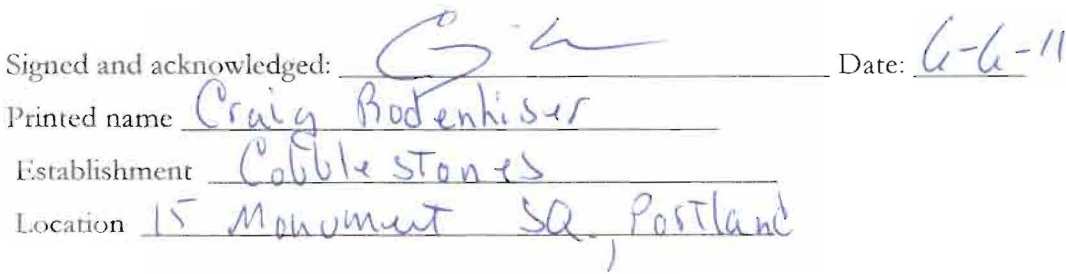 Signed and acknowledged: Date: 6-6-11
Printed name Craig Rodenhiser
Establishment Cobblestones
Location 15 Monument SQ., Portland